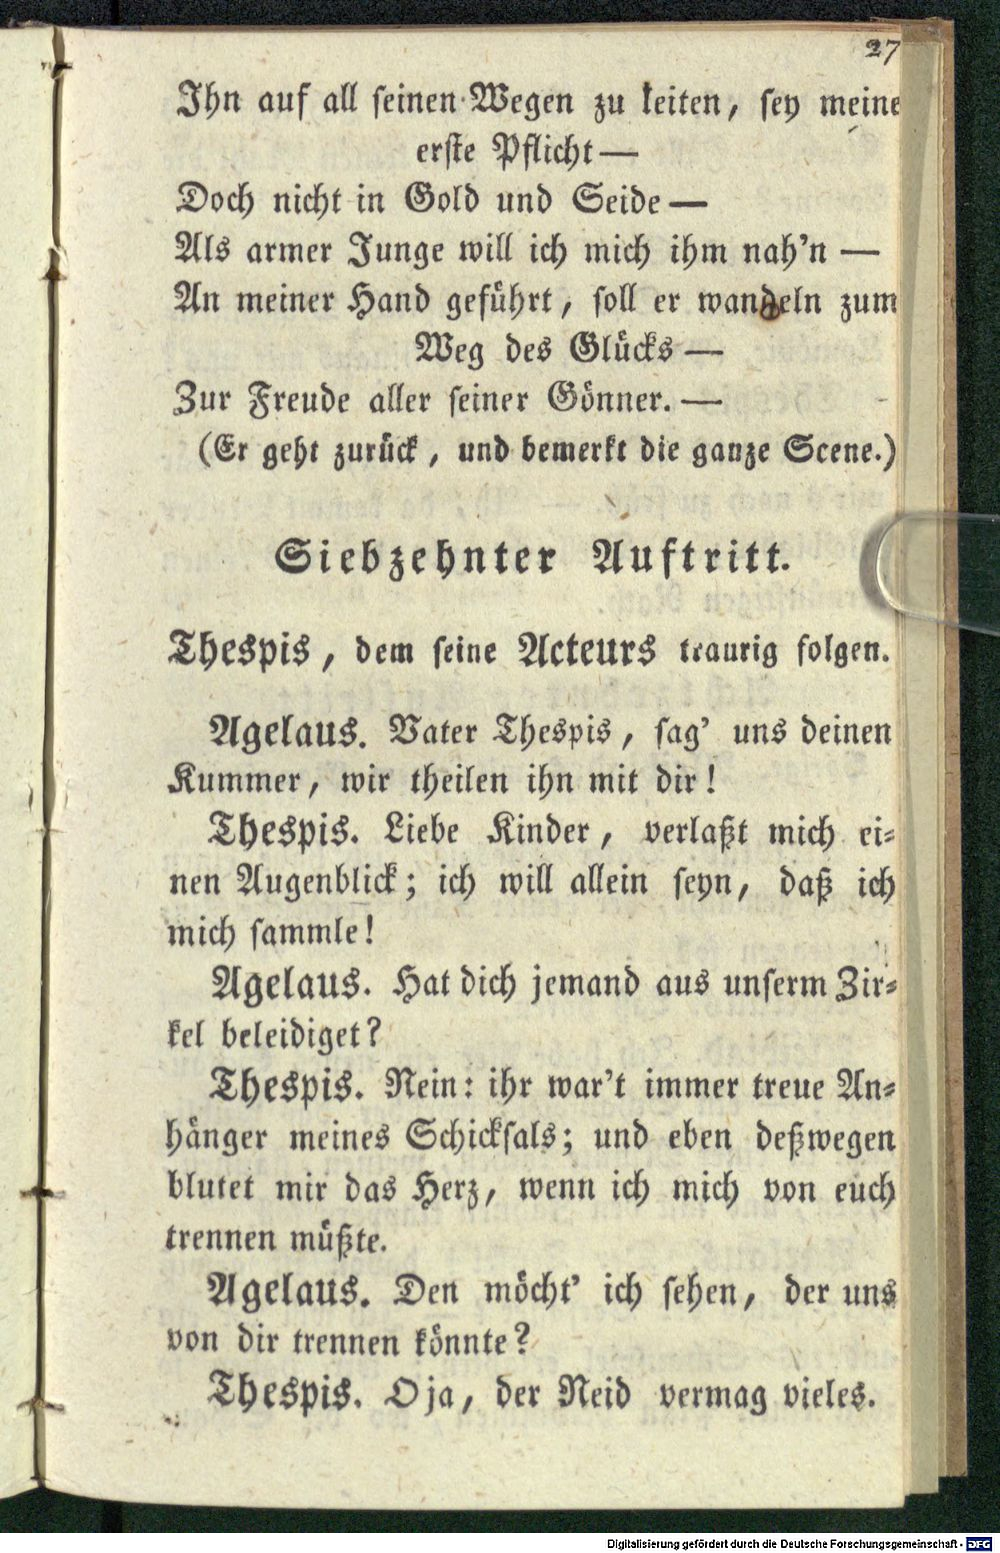 27
Ihn auf all seinen Wegen zu leiten, sey meine
erste Pflicht —
Doch nicht in Gold und Seide —
Als armer Junge will ich mich ihm nah'n —
An meiner Hand geführt, soll er wandeln zum
Weg des Glücks —
Zur Freude aller seiner Gönner. —
(Er geht zurück, und bemerkt die ganze Scene.)
Siebzehnter Auftritt.
Thespis, dem seine Acteurs traurig folgen.
Agelaus. Vater Thespis, sag' uns deinen
Kummer, wir theilen ihn mit dir!
Thespis. Liebe Kinder, verlaßt mich ei-
nen Augenblick; ich will allein seyn, daß ich
mich sammle!
Agelaus. Hat dich jemand aus unserm Zir-
kel beleidiget?
Thespis. Nein: ihr war't immer treue An-
hänger meines Schicksals; und eben deßwegen
blutet mir das Herz, wenn ich mich von euch
trennen müßte.
Agelaus. Den möcht' ich sehen, der uns
von dir trennen könnte?
Thespis. O ja, der Neid vermag vieles.
Digitalisierung gefördert durch die Deutsche Forschungsgemeinschaft - DFG